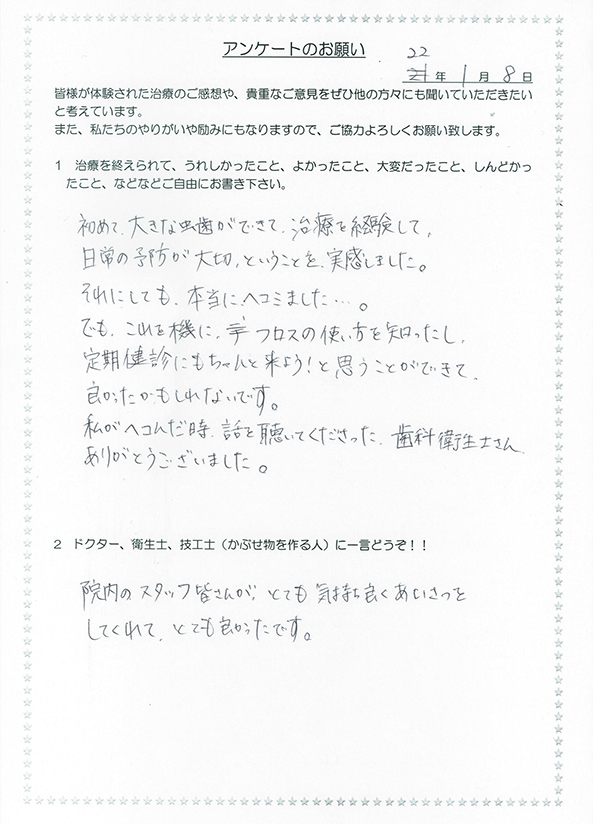 アンケートのお願い
22
21年 1月 8日
皆様が体験された治療のご感想や、貴重なご意見をぜひ他の方々にも聞いていただきたい
と考えています。
また、私たちのやりがいや励みにもなりますので、ご協力よろしくお願い致します。
1 治療を終えられて、うれしかったこと、よかったこと、大変だったこと、しんどかっ
たこと、などなどご自由にお書き下さい。
初めて、大きな虫歯ができて、治療を経験して、
日常の予防が大切、ということを、実感しました。
それにしても、本当にヘコミました…。
でも、これを機に、フロスの使い方を知ったし、
定期健診にもちゃんと来よう!と思うことができて、
良かったかもしれないです。
私がヘコんだ時、話を聴いてくださった、歯科衛生士さん、
ありがとうございました。
2 ドクター、衛生士、技工士（かぶせ物を作る人）に一言どうぞ！！
院内のスタッフ皆さんが、とても気持ち良くあいさつを
してくれて、とても良かったです。